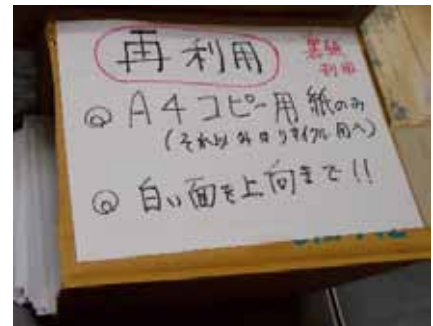 再利用
裏紙
利用
◎ A4コピー用紙のみ
(それ以外はリサイクル用へ)
◎ 白い面を上向きで!!